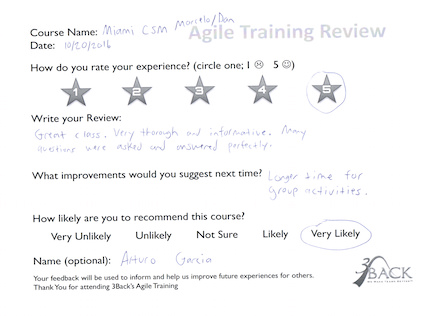 Course Name: Miami CSM Marcelo/Dan
Agile Training Review
Date: 10/20/2016
How do you rate your experience? (circle one; 1 ☹ 5 ☺)
1 2 3 4 5
Write your Review:
Great class. Very thorough and informative. Many
questions were asked and answered perfectly.
What improvements would you suggest next time? Longer time for
group activities.
How likely are you to recommend this course?
Very Unlikely Unlikely Not Sure Likely Very Likely
Name (optional): Arturo Garcia
3BACK
Your feedback will be used to inform and help us improve future experiences for others.
Thank You for attending 3Back's Agile Training